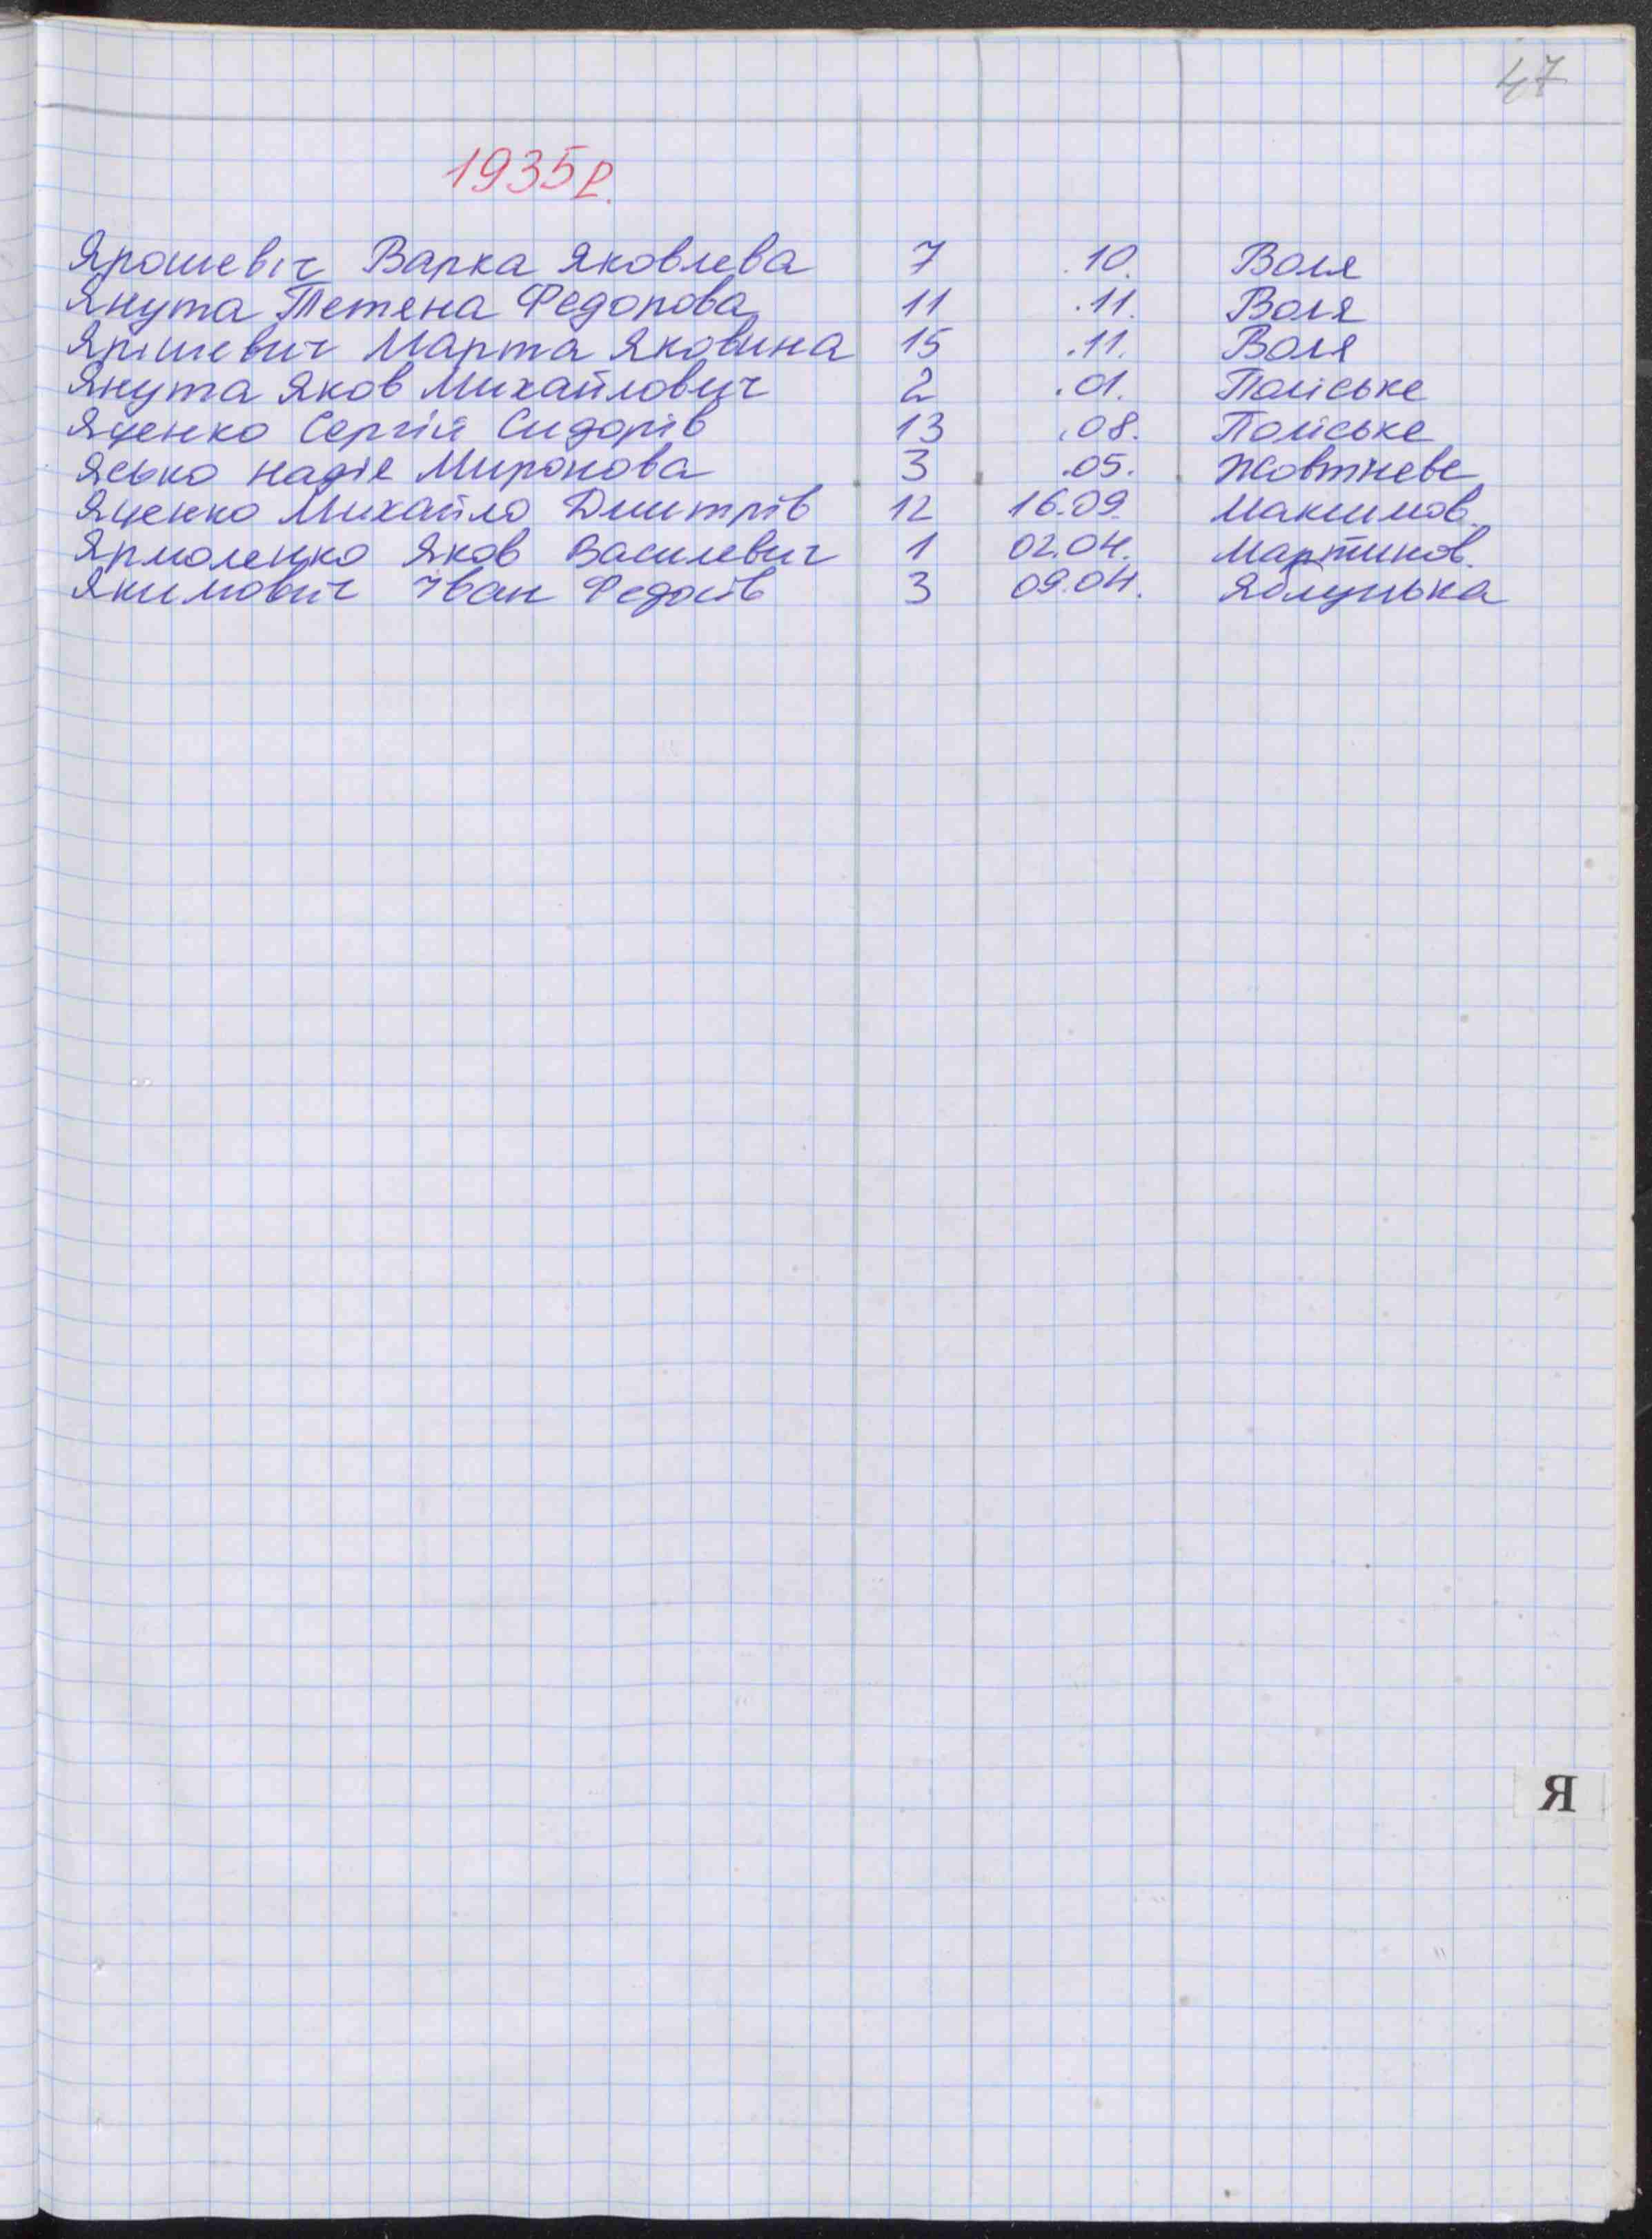 47
1935р.
Ярошевіч Варка Яковлева 7 .10. Воля
Янута Тетяна Федорова 11 .11. Воля
Ярішевич Марта Яковина 15 .11. Воля
Янута Яков Михайлович 2 .01. Поліське
Яценко Сергій Сидорів 13 .08. Поліське
Ясько Надія Миронова 3 .05. Жовтневе
Яценко Михайло Дмитрів 12 16.09. Максимов.
Ярмоленко Яков Василевич 1 02.04. Мартинов.
Якимович Іван Федосів 3 09.04. Яблунька
Я